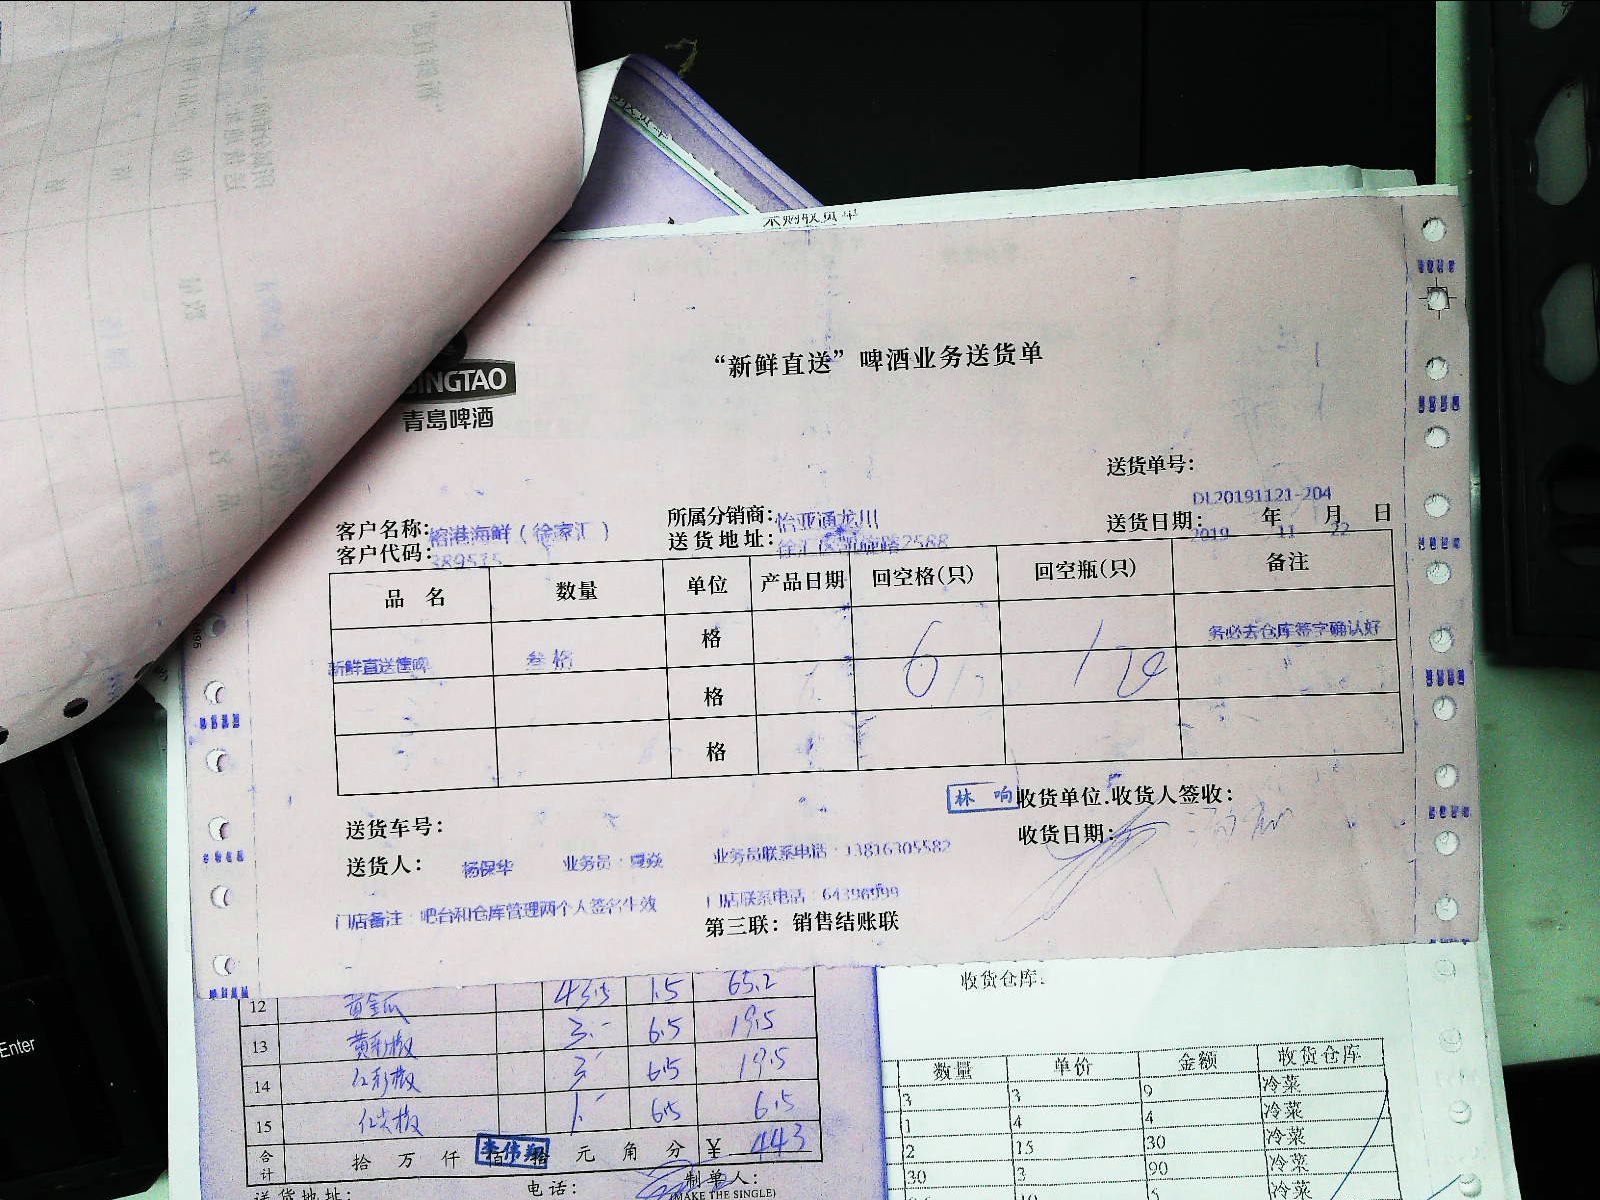 “新鲜直送”啤酒业务送货单
INGTAO
青島啤酒
送货单号：
DL20191121-204
客户名称：榕港海鲜（徐家汇）
所属分销商：怡亚通龙川
送货日期： 2019 年 11 月 22 日
客户代码：389535
送货地址：徐汇区 路2588
品名 数量 单位 产品日期 回空格(只) 回空瓶(只) 备注
新鲜直送 叁格 格 6 务必去仓库签字确认好
格
格
林响 收货单位.收货人签收：
送货车号：
收货日期：
送货人： 杨保华 业务员：夏焱 业务员联系电话：13816305582
门店备注：吧台和仓库管理两个人签名生效 门店联系电话：64398999
第三联：销售结账联
12 黄金瓜 43.5 1.5 65.2
13 黄彩椒 3.- 6.5 19.5
14 红彩椒 3- 6.5 19.5
15 红尖椒 1.- 6.5 6.5
合计 拾 万 仟 佰 拾 元 角 分 ￥ 443
李伟翔
送货地址： 电话： 制单人：
(MAKE THE SINGLE)
收货仓库：
数量 单价 金额 收货仓库
3 3 9 冷菜
1 4 4 冷菜
2 15 30 冷菜
30 3 90 冷菜
冷菜
Enter